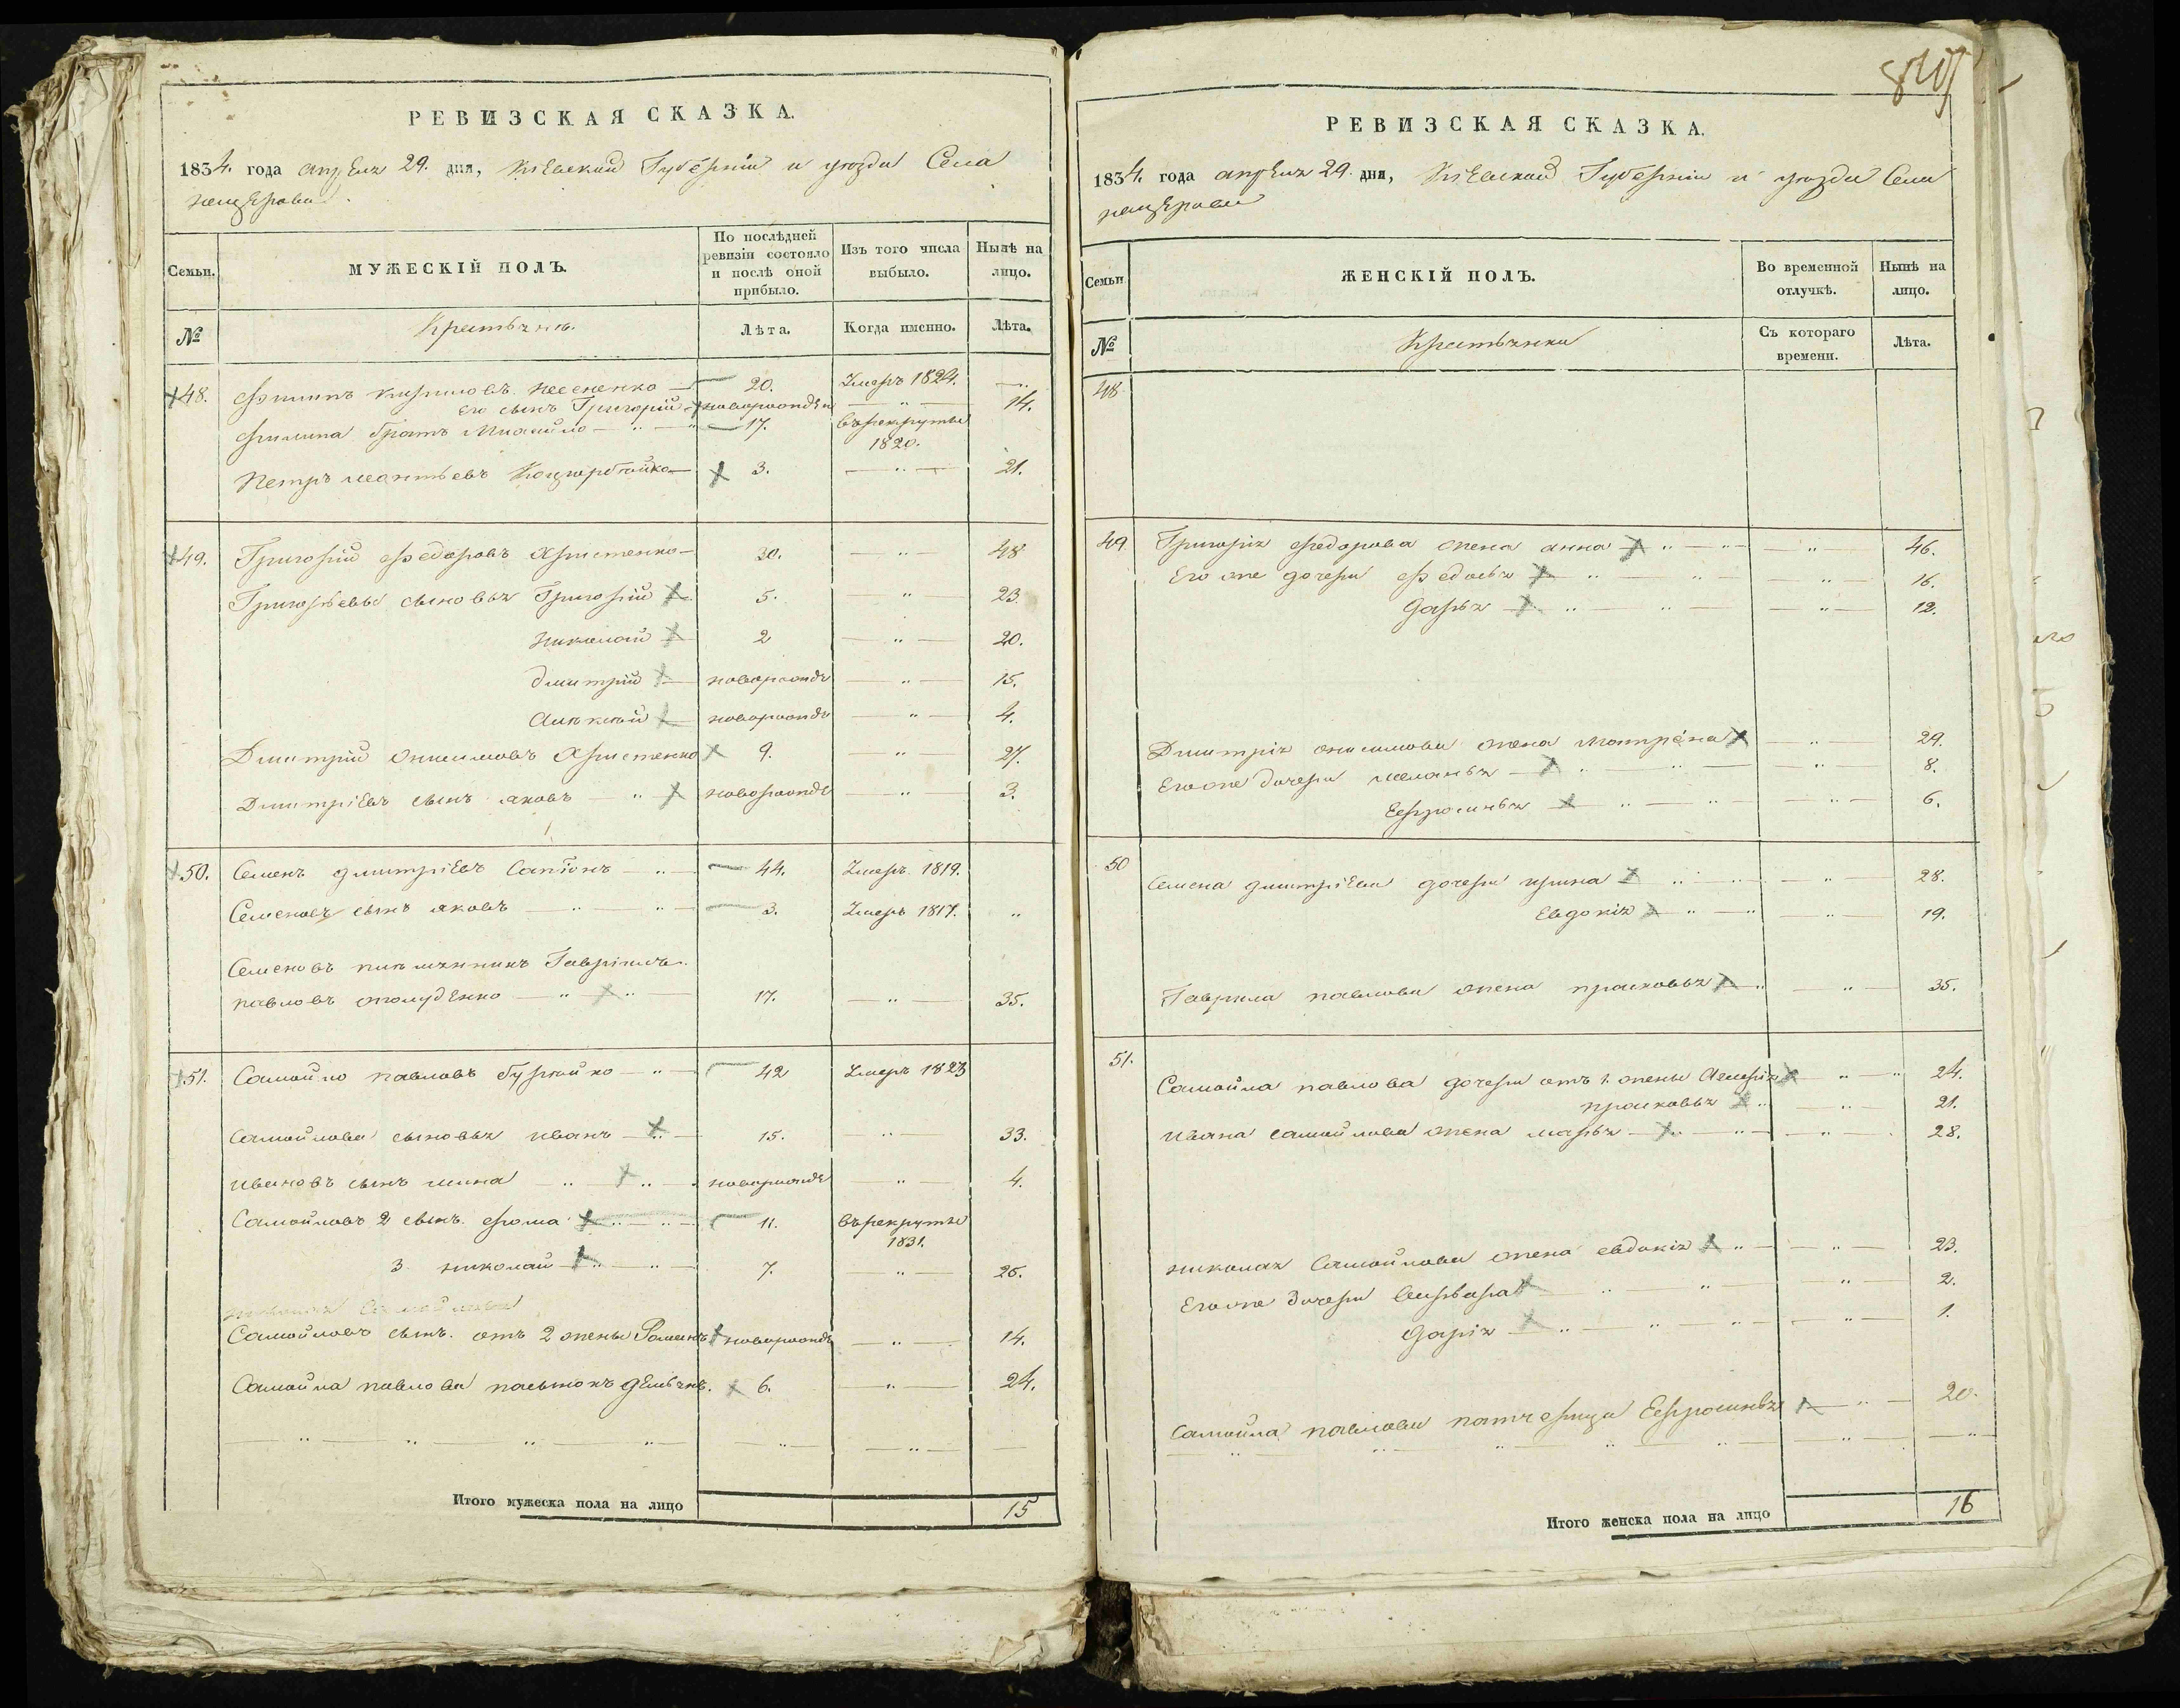 РЕВИЗСКАЯ СКАЗКА.
1834. года апрѣля 29. дня, Кіевской Губерніи и уезда Села
пещерова.
Семьи. МУЖЕСКІЙ ПОЛЪ. По послѣдней ревизіи состояло и послѣ оной прибыло. Изъ того числа выбыло. Нынѣ на лицо.
№ Крестьяне. Лѣта. Когда именно. Лѣта.
48. Филипъ Кириловъ 20. Умеръ 1824.
его сынъ Григорій новорожден 14.
Филипа братъ Михайло 17. въ рекруты 1820.
Петръ 3. 21.
49. Григорій Федоровъ Христенко 30. 48
Григорьевы сыновья Григорій 5. 23.
Николай 2 20.
Дмитрій новорожде 15.
Алѣксѣй новорожде 4.
Дмитрій Онисимовъ Христенко 9. 27.
Дмитріевъ сынъ яковъ новорожде 3.
50. Семенъ дмитріевъ Сапіонъ 44. Умеръ 1819.
Семеновъ сынъ яковъ 3. Умеръ 1817.
Семеновъ племянникъ Гавріилъ
павловъ 17. 35.
51. Самойло павловъ 42 Умеръ 1823
Самойлова сыновья иванъ 15. 33.
ивановъ сынъ мина новорожде 4.
Самойловъ 2 сынъ. фома 11. въ рекруты 1831.
3 николай 7. 25.
Самойловъ сынъ. отъ 2 жены Романъ новорожде 14.
Самойла павлова пасынокъ дѣмьянъ. 6. 24.
Итого мужеска пола на лицо 15
РЕВИЗСКАЯ СКАЗКА.
1834. года апрѣля 29. дня, Кіевской Губерніи и уезда Села
пещерова
Семьи ЖЕНСКІЙ ПОЛЪ. Во временной отлучкѣ. Нынѣ на лицо.
№ Крестьянки Съ котораго времени. Лѣта.
48
49 Григорія федорова жена анна 46.
Его же дочери федосья 16.
Дарья 12.
Дмитрія онисимова жена Матрена 29.
Его же дочери меланья 8.
Ефросинья 6.
50 Семена дмитріева дочери ирина 28.
Евдокія 19.
Гаврила павлова жена прасковья 35.
51. Самойла павлова дочери отъ 1. жены 24.
прасковья 21.
ивана самойлова жена марья 28.
николая Самойлова жена евдокія 23.
Его же дочери Варвара 2.
Дарія 1.
Самойла павлова патчерица Ефросинья 20.
Итого женска пола на лицо 16